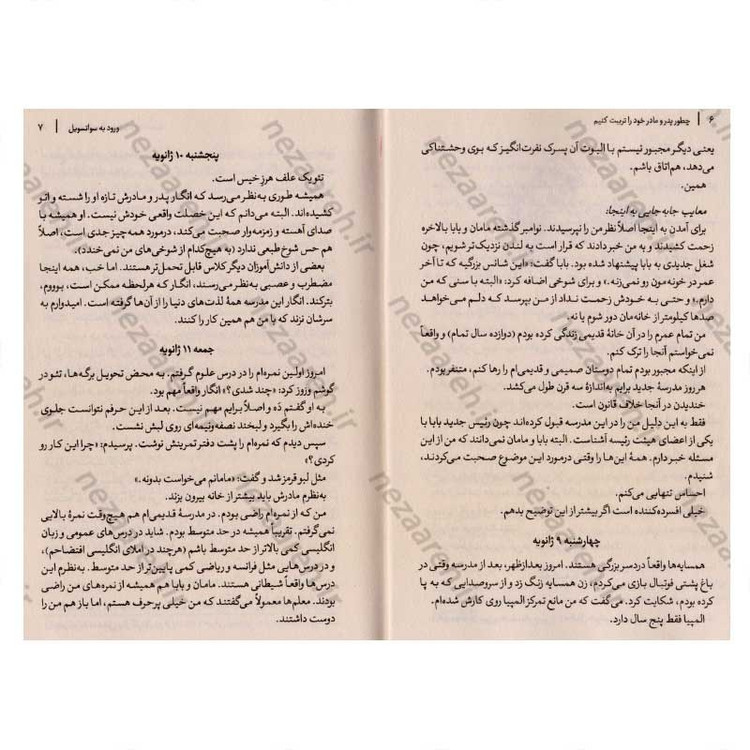 ۶ | چطور پدر و مادر خود را تربیت کنیم
یعنی دیگر مجبور نیستم با البوت آن پسرک نفرت‌انگیز که بوی وحشتناکی
می‌دهد، هم‌اتاق باشم.
همین.
معایب جابه‌جایی به اینجا:
برای آمدن به اینجا اصلاً نظر من را نپرسیدند. نوامبر گذشته مامان و بابا بالاخره
زحمت کشیدند و به من خبر دادند که قرار است به لندن نزدیک‌تر شویم، چون
شغل جدیدی به بابا پیشنهاد شده بود. بابا گفت: «این شانس بزرگیه که آخر
عمر در خونه‌مون رو نمی‌زنه.» و برای شوخی اضافه کرد: «البته با سنی که من
دارم.» و حتی به خودش زحمت نداد از من بپرسد که دلم می‌خواهد
صدها کیلومتر از خانه‌مان دور شوم یا نه.
من تمام عمرم را در آن خانهٔ قدیمی زندگی کرده بودم (دوازده سال تمام) و واقعاً
نمی‌خواستم آنجا را ترک کنم.
از اینکه مجبور بودم تمام دوستان صمیمی و قدیمی‌ام را رها کنم، متنفر بودم.
هر روز مدرسهٔ جدید برایم به‌اندازهٔ سه قرن طول می‌کشد.
خندیدن در آنجا خلاف قانون است.
فقط به این دلیل من را در این مدرسه قبول کرده‌اند چون رئیس جدید بابا با
یکی از اعضای هیئت رئیسه آشناست. البته بابا و مامان نمی‌دانند که من از این
مسئله خبر دارم. همهٔ این‌ها را وقتی درمورد این موضوع صحبت می‌کردند،
شنیدم.
احساس تنهایی می‌کنم.
خیلی افسرده‌کننده است اگر بیشتر از این توضیح بدهم.
چهارشنبه ۹ ژانویه
همسایه‌ها واقعاً دردسر بزرگی هستند. امروز بعدازظهر، بعد از مدرسه وقتی در
باغ پشتی فوتبال بازی می‌کردم، زن همسایه زنگ زد و از سروصدایی که به پا
کرده بودم، شکایت کرد. می‌گفت که من مانع تمرکز المپیا روی کارش شده‌ام.
المپیا فقط پنج سال دارد.
ورود به سوانسویل | ۷
پنجشنبه ۱۰ ژانویه
تئو یک علف هرز خیس است.
همیشه طوری به‌نظر می‌رسد که انگار پدر و مادرش تازه او را شسته و اتو
کشیده‌اند. البته می‌دانم که این خصلت واقعی خودش نیست. او همیشه با
صدای آهسته و زمزمه‌وار صحبت می‌کند، درمورد همه‌چیز جدی است، اصلاً
هم حس شوخ‌طبعی ندارد (به هیچ‌کدام از شوخی‌های من نمی‌خندد).
بعضی از دانش‌آموزان دیگر کلاس قابل تحمل‌تر هستند. اما خب، همه اینجا
مضطرب و عصبی به‌نظر می‌رسند، انگار که هرلحظه ممکن است، بووم،
بترکند. انگار این مدرسه همهٔ لذت‌های دنیا را از آن‌ها گرفته است. امیدوارم به
سرشان نزند که با من هم همین کار را کنند.
جمعه ۱۱ ژانویه
امروز اولین نمره‌ام را در درس علوم گرفتم. به محض تحویل برگه‌ها، تئو در
گوشم وزوز کرد: «چند شدی؟» انگار واقعاً مهم بود.
به او گفتم دَه و اصلاً برایم مهم نیست. بعد از این حرفم نتوانست جلوی
خنده‌اش را بگیرد و لبخند نصفه‌ونیمه‌ای روی لبش نشست.
سپس دیدم که نمره‌ام را پشت دفتر تمرینش نوشت. پرسیدم: «چرا این کار رو
کردی؟»
مثل لبو قرمز شد و گفت: «مامانم می‌خواست بدونه.»
به‌نظرم مادرش باید بیشتر از خانه بیرون بزند.
من که از نمره‌ام راضی بودم. در مدرسهٔ قدیمی‌ام هم هیچ‌وقت نمرهٔ بالایی
نمی‌گرفتم. تقریباً همیشه در حد متوسط بودم. شاید در درس‌های عمومی و زبان
انگلیسی کمی بالاتر از حد متوسط باشم (هرچند در املای انگلیسی افتضاحم)،
و در درس‌هایی مثل فرانسه و ریاضی کمی پایین‌تر از حد متوسط. به‌نظرم این
درس‌ها واقعاً شیطانی هستند. مامان و بابا هم همیشه از نمره‌های من راضی
بودند. معلم‌ها معمولاً می‌گفتند که من خیلی پرحرف هستم، اما باز هم من را
دوست داشتند.
nezaareh.ir